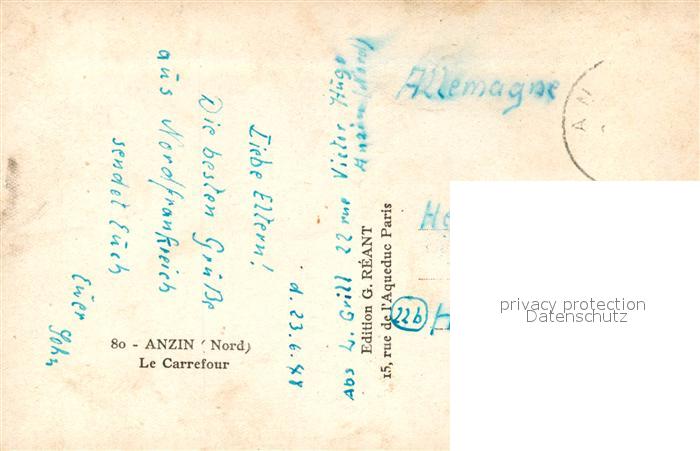 Allemagne
Abs L. Grill 22 rue Victor Hugo
Anzin (Nord)
d. 23.6.48
Liebe Eltern!
Die besten Grüße
aus Nordfrankreich
sendet Euch
Euer Sohn
80 - ANZIN (Nord)
Le Carrefour
Edition G. RÉANT
15, rue de l'Aqueduc Paris
He
22b
H
AN
privacy protection
Datenschutz